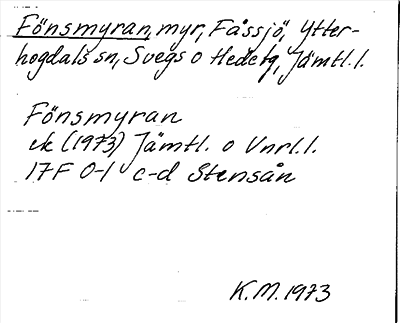 Fönsmyran, myr, Fåssjö, Ytter-
hogdals sn, Svegs o Hede tg, Jämtl. l.
Fönsmyran
ek (1973) Jämtl. o Vnrl. l.
17F 0-1 c-d Stensån
K.M. 1973